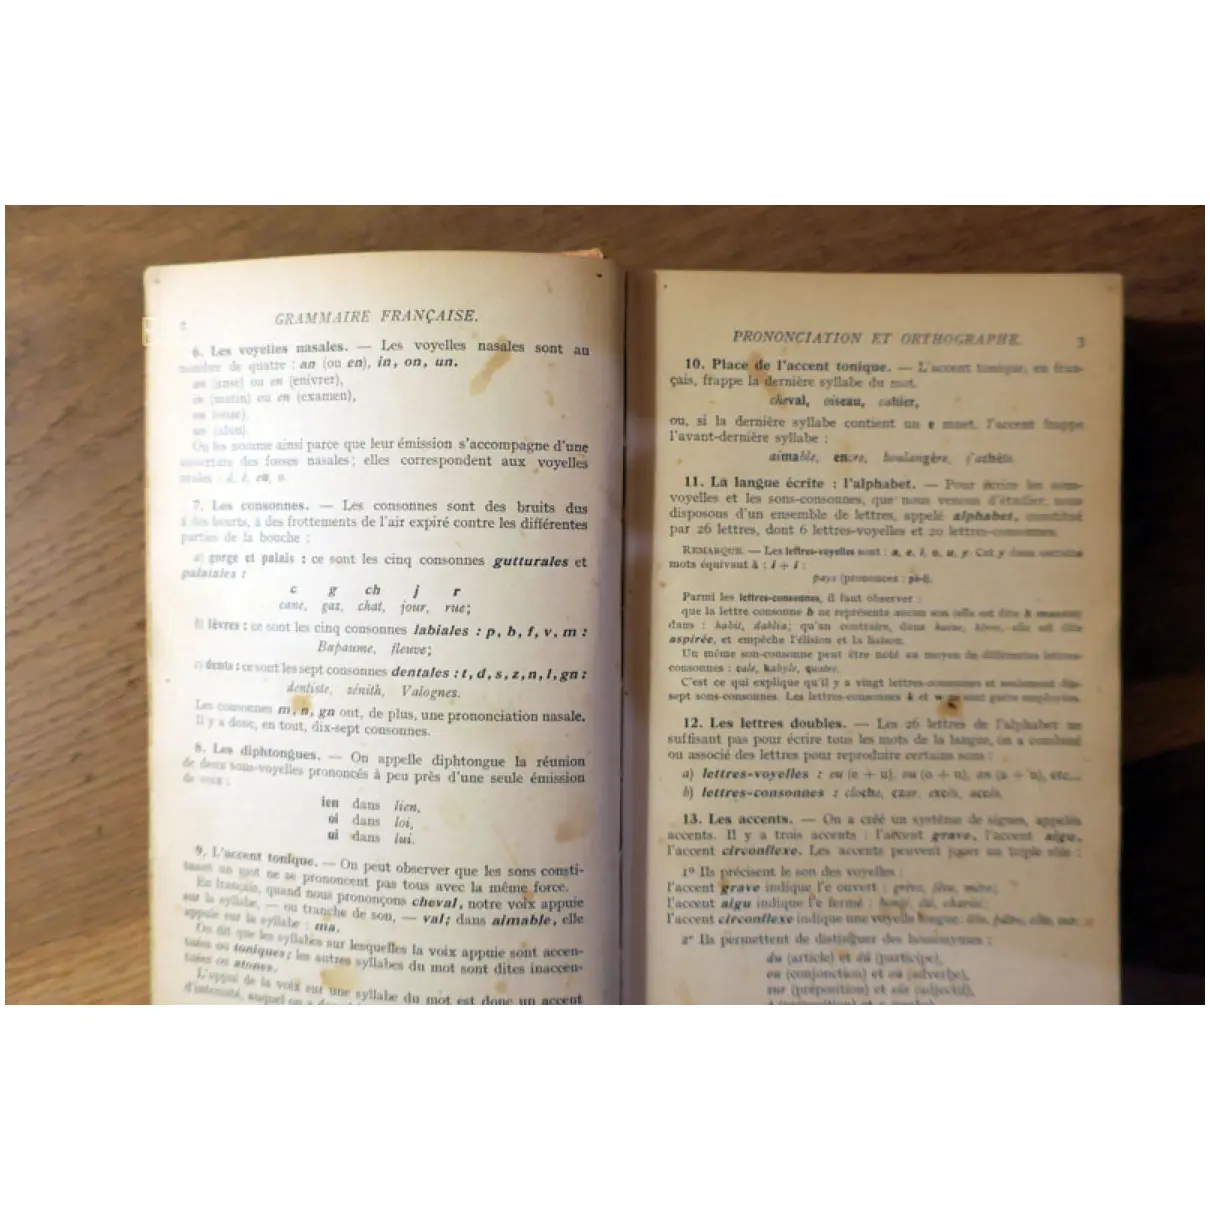 GRAMMAIRE FRANÇAISE.
6. Les voyelles nasales. — Les voyelles nasales sont au
nombre de quatre : an (ou en), in, on, un.
an (anse) ou en (enivrer),
in (matin) ou en (examen),
on
un
On les nomme ainsi parce que leur émission s'accompagne d'une
ouverture des fosses nasales; elles correspondent aux voyelles
7. Les consonnes. — Les consonnes sont des bruits dus
à des heurts, à des frottements de l'air expiré contre les différentes
parties de la bouche :
a) gorge et palais : ce sont les cinq consonnes gutturales et
palatales :
c g ch j r
cane, gaz, chat, jour, rue;
b) lèvres : ce sont les cinq consonnes labiales : p, b, f, v, m :
Bapaume, fleuve;
c) dents : ce sont les sept consonnes dentales : t, d, s, z, n, l, gn :
dentiste, zénith, Valognes.
Les consonnes m, n, gn ont, de plus, une prononciation nasale.
Il y a donc, en tout, dix-sept consonnes.
8. Les diphtongues. — On appelle diphtongue la réunion
de deux sons-voyelles prononcés à peu près d'une seule émission
de voix :
ien dans lien,
oi dans loi,
ui dans lui.
9. L'accent tonique. — On peut observer que les sons consti-
tuant un mot ne se prononcent pas tous avec la même force.
En français, quand nous prononçons cheval, notre voix appuie
sur la syllabe, — ou tranche de son, — val; dans aimable, elle
appuie sur la syllabe : ma.
On dit que les syllabes sur lesquelles la voix appuie sont accen-
tuées ou toniques; les autres syllabes du mot sont dites inaccen-
tuées ou atones.
L'appui de la voix sur une syllabe du mot est donc un accent
d'intensité, auquel on a
PRONONCIATION ET ORTHOGRAPHE. 3
10. Place de l'accent tonique. — L'accent tonique, en fran-
çais, frappe la dernière syllabe du mot.
cheval, oiseau, cahier,
ou, si la dernière syllabe contient un e muet, l'accent frappe
l'avant-dernière syllabe :
aimable, encre, boulangère, j'achète.
11. La langue écrite : l'alphabet. — Pour écrire les sons-
voyelles et les sons-consonnes, que nous venons d'étudier, nous
disposons d'un ensemble de lettres, appelé alphabet, constitué
par 26 lettres, dont 6 lettres-voyelles et 20 lettres-consonnes.
REMARQUE. — Les lettres-voyelles sont : a, e, i, o, u, y. Cet y dans certains
mots équivaut à : i + i :
pays (prononcez : pè-i).
Parmi les lettres-consonnes, il faut observer :
que la lettre consonne h ne représente aucun son (elle est dite h muette)
dans : habit, dahlia; qu'au contraire, dans elle est dite
aspirée, et empêche l'élision et la liaison.
Un même son-consonne peut être noté au moyen de différentes lettres-
consonnes : cale, kabyle, quatre.
C'est ce qui explique qu'il y a vingt lettres-consonnes et seulement dix-
sept sons-consonnes. Les lettres-consonnes k et w sont guère employées.
12. Les lettres doubles. — Les 26 lettres de l'alphabet ne
suffisant pas pour écrire tous les mots de la langue, on a combiné
ou associé des lettres pour reproduire certains sons :
a) lettres-voyelles : eu (e + u), ou (o + u), etc...
b) lettres-consonnes : cloche, czar, excès, accès.
13. Les accents. — On a créé un système de signes, appelés
accents. Il y a trois accents : l'accent grave, l'accent aigu,
l'accent circonflexe. Les accents peuvent jouer un triple rôle :
1º Ils précisent le son des voyelles :
l'accent grave indique l'e ouvert :
l'accent aigu indique l'e fermé :
l'accent circonflexe indique une voyelle longue :
2º Ils permettent de distinguer des homonymes :
du (article) et dû (participe),
ou (conjonction) et où (adverbe),
sur (préposition) et sûr (adjectif),